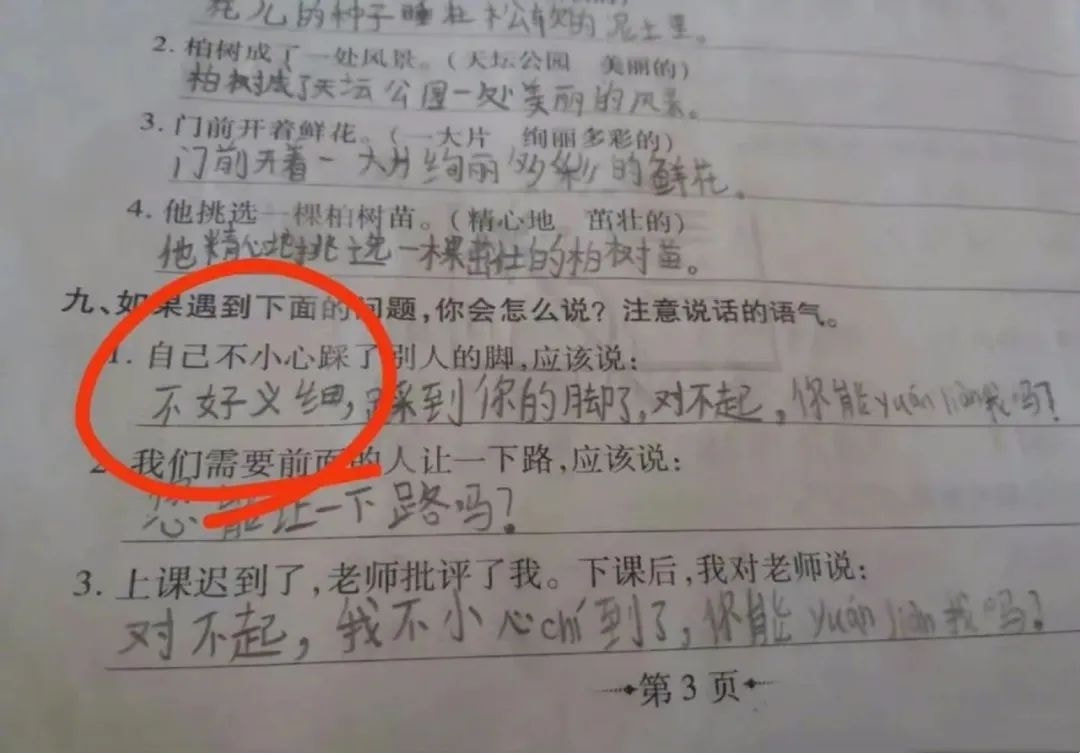 花儿的种子睡在松软的泥土里。
2. 柏树成了一处风景。(天坛公园 美丽的)
柏树成了天坛公园一处美丽的风景。
3. 门前开着鲜花。(一大片 绚丽多彩的)
门前开着一大片绚丽多彩的鲜花。
4. 他挑选一棵柏树苗。(精心地 茁壮的)
他精心地挑选一棵茁壮的柏树苗。
九、如果遇到下面的问题,你会怎么说? 注意说话的语气。
1. 自己不小心踩了别人的脚,应该说:
不好义细,踩到你的脚了,对不起,你能yuán liàn我吗?
2. 我们需要前面的人让一下路,应该说:
您能让一下路吗?
3. 上课迟到了,老师批评了我。下课后,我对老师说:
对不起,我不小心chí到了,你能yuán liàn我吗?
第 3 页